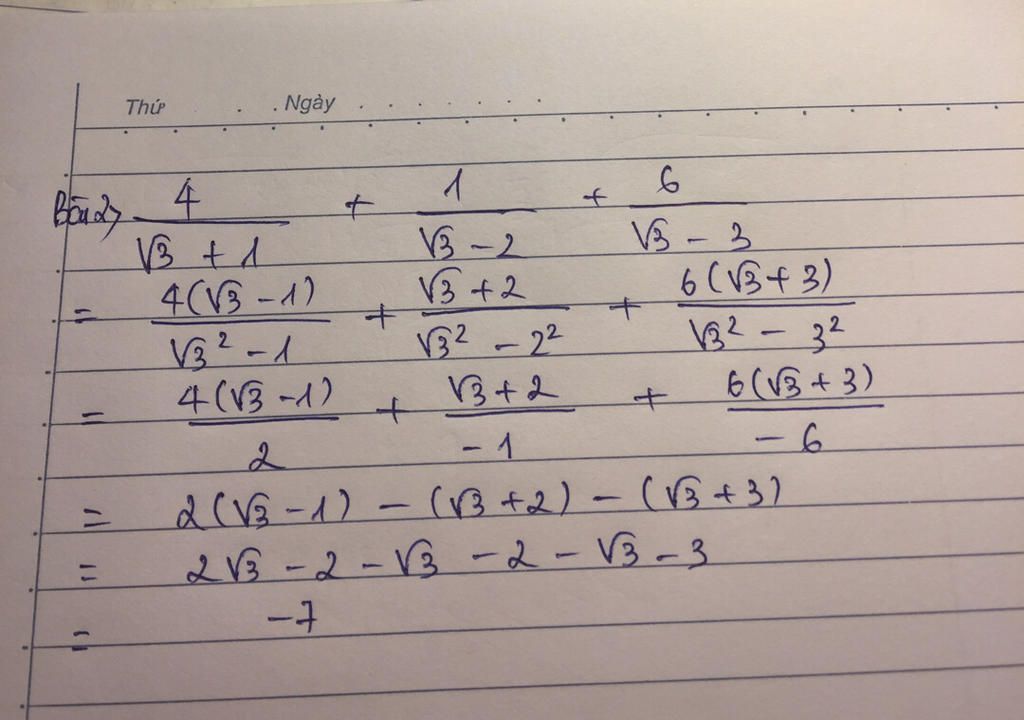 Thứ . . . Ngày . . . . . . .
Bài 2) 4/(√3 + 1) + 1/(√3 - 2) + 6/(√3 - 3)
= 4(√3 - 1)/(√3² - 1) + (√3 + 2)/(√3² - 2²) + 6(√3 + 3)/(√3² - 3²)
= 4(√3 - 1)/2 + (√3 + 2)/-1 + 6(√3 + 3)/-6
= 2(√3 - 1) - (√3 + 2) - (√3 + 3)
= 2√3 - 2 - √3 - 2 - √3 - 3
= -7